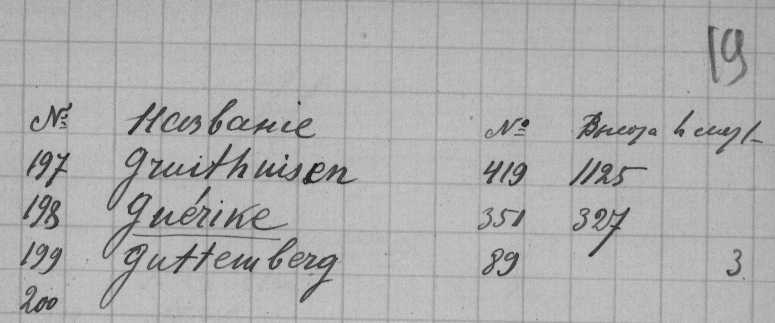 19
№ Названіе № Высота
197 Gruithuisen 419 1125
198 Guérike 351 327
199 Guttemberg 89 3
200